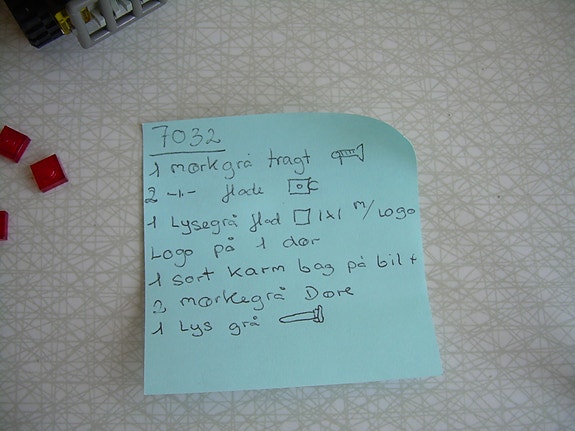 7032
1 mørkgrå tragt
2 -"- flade
1 Lysegrå flad 1x1 m/Logo
Logo på 1 dør
1 sort karm bag på bil +
2 mørkegrå Døre
1 Lys grå